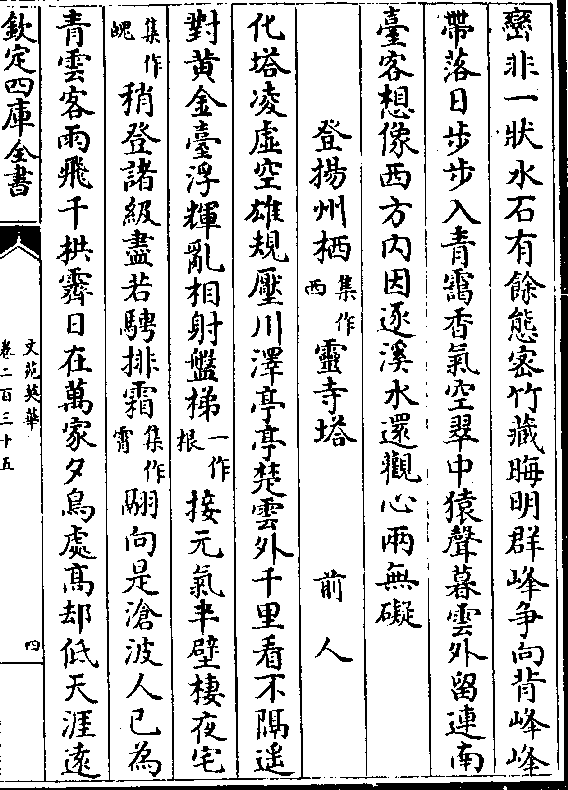 巒非一狀水石有餘態宻竹藏晦明群峰爭向背峰峰
帶落日步步入青靄香氣空翠中猿聲暮雲外留連南
臺客想像西方内因逐溪水還觀心兩無礙
登揚州栖集作西靈寺塔　前人
化塔凌虛空雄規壓川澤亭亭楚雲外千里看不隔遥
對黄金臺浮輝亂相射盤梯一作根接元氣半壁棲夜宅
集作魄稍登諸級盡若騁排霜集作霄翮向是滄波人已為
青雲客雨飛千拱霽日在萬家夕鳥處髙却低天涯逺
欽定四庫全書
文苑英華
卷二百三十五
四